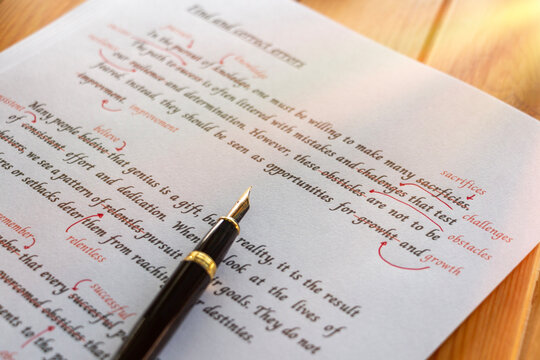 Find and correct errors
knowledge
In the of knowledge, one must be willing to make many sacrficies.
sacrifices
The path to is often littered with mistakes and chalenges that test
challenges
our resilience and determination. However these obsticles are not to be
obstacles
feared. Instead, they should be seen as opportunities for growht and
growth
improvment.
improvement
believe
Many people beleive that genius is a gift, reality, it is the result
of consistent effort and dedication. look at the lives of
we see a pattern of relentles pursuit goals. They do not
relentless
or setbacks deter them from destinies.
remember
that every
successful
overcomed obstacles that
to the